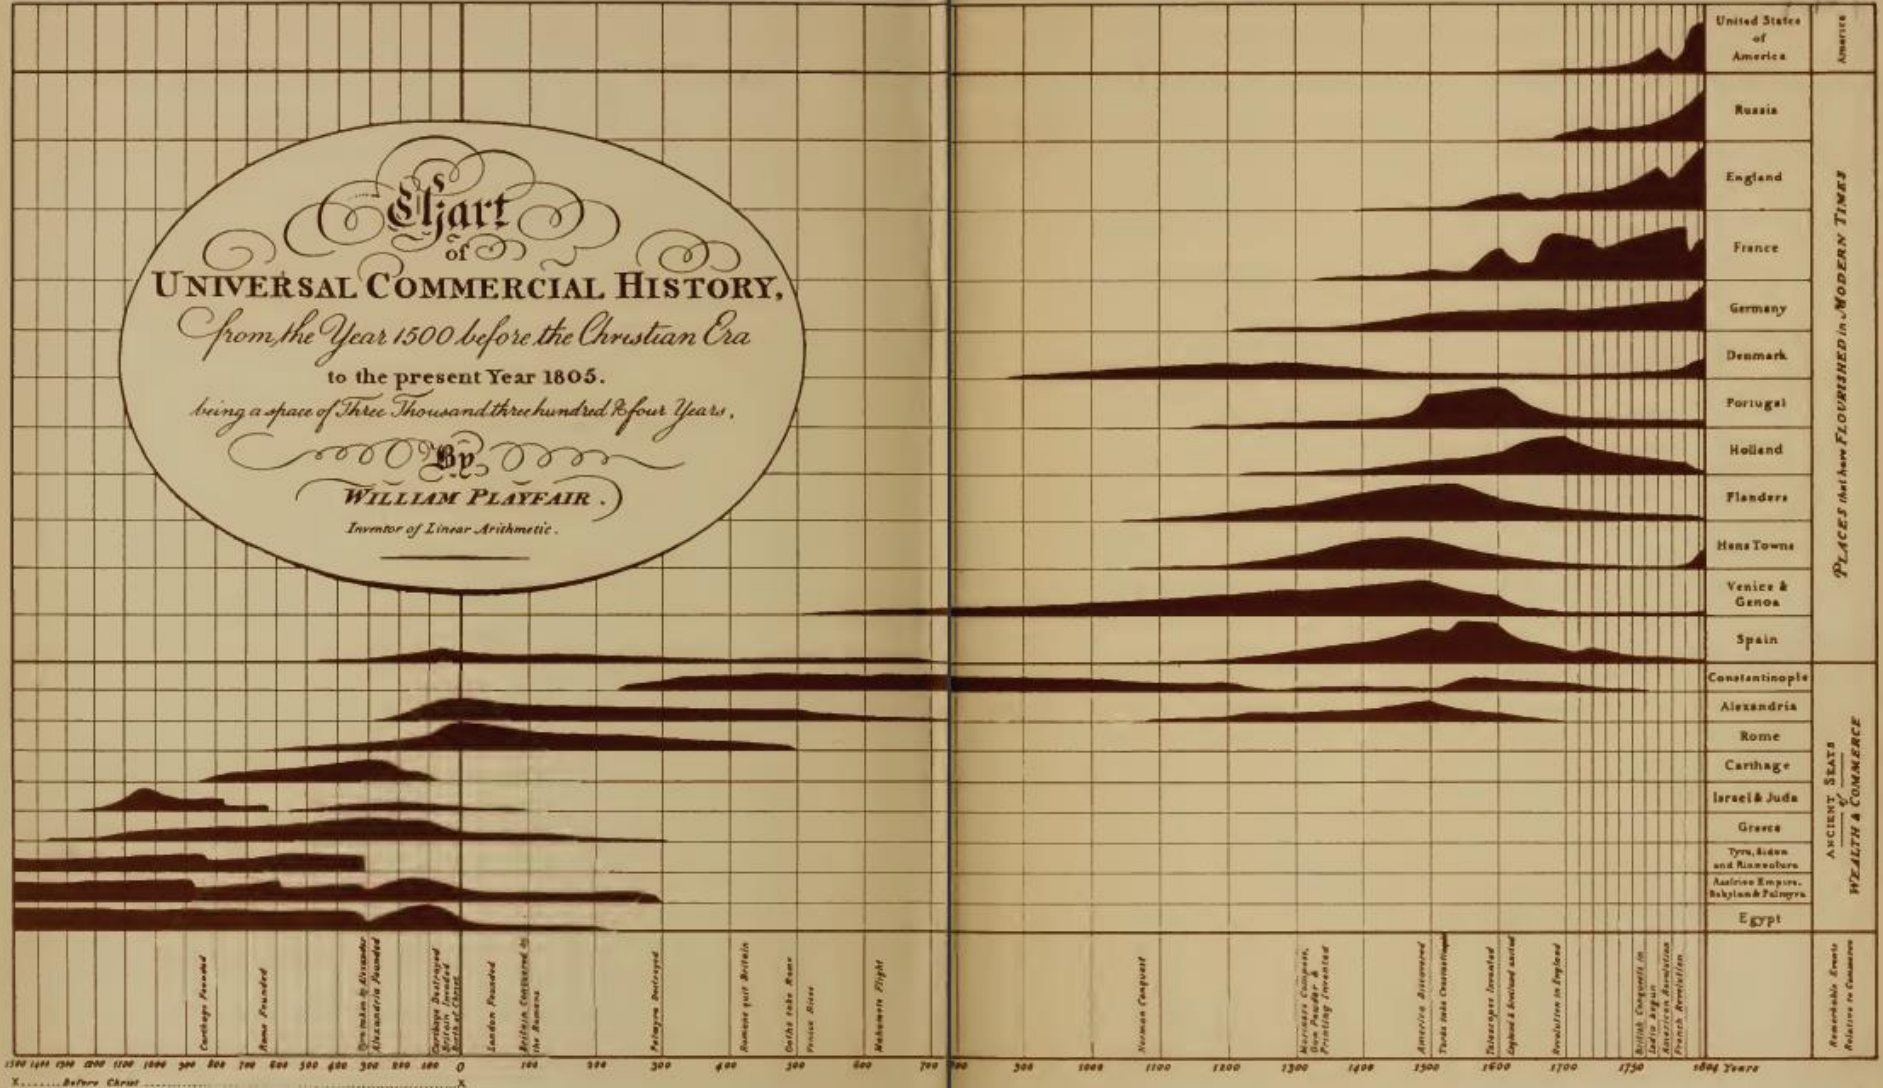 Chart
of
UNIVERSAL COMMERCIAL HISTORY,
from the Year 1500 before the Christian Era
to the present Year 1805.
being a space of Three Thousand three hundred & four Years,
By
WILLIAM PLAYFAIR.
Inventor of Linear Arithmetic.
United States
of
America
Russia
England
France
Germany
Denmark
Portugal
Holland
Flanders
Hans Towns
Venice &
Genoa
Spain
Constantinople
Alexandria
Rome
Carthage
Israel & Juda
Greece
Tyre, Sidon
and
Empire,
Babylon & Palmyra
Egypt
America
PLACES that have FLOURISHED in MODERN TIMES
ANCIENT SEATS
of
WEALTH & COMMERCE
Remarkable Events
Relative to Commerce
Carthage Founded
Rome Founded
taken by Alexander
Alexandria Founded
Carthage Destroyed
Britain Invaded
Birth of Christ
London Founded
Britain Conquered by
the Romans
Palmyra Destroyed
Romans quit Britain
Goths take Rome
Venice Rises
Mahomets Flight
Norman Conquest
Mariners Compass,
Gun Powder &
Printing Invented
America Discovered
Turks take Constantinople
Telescopes Invented
England & Scotland united
Revolution in England
British Conquests in
India begun
American Revolution
French Revolution
1500 1400 1300 1200 1100 1000 900 800 700 600 500 400 300 200 100 0 100 200 300 400 500 600 700 800 900 1000 1100 1200 1300 1400 1500 1600 1700 1750 1804 Years
X Before Christ X